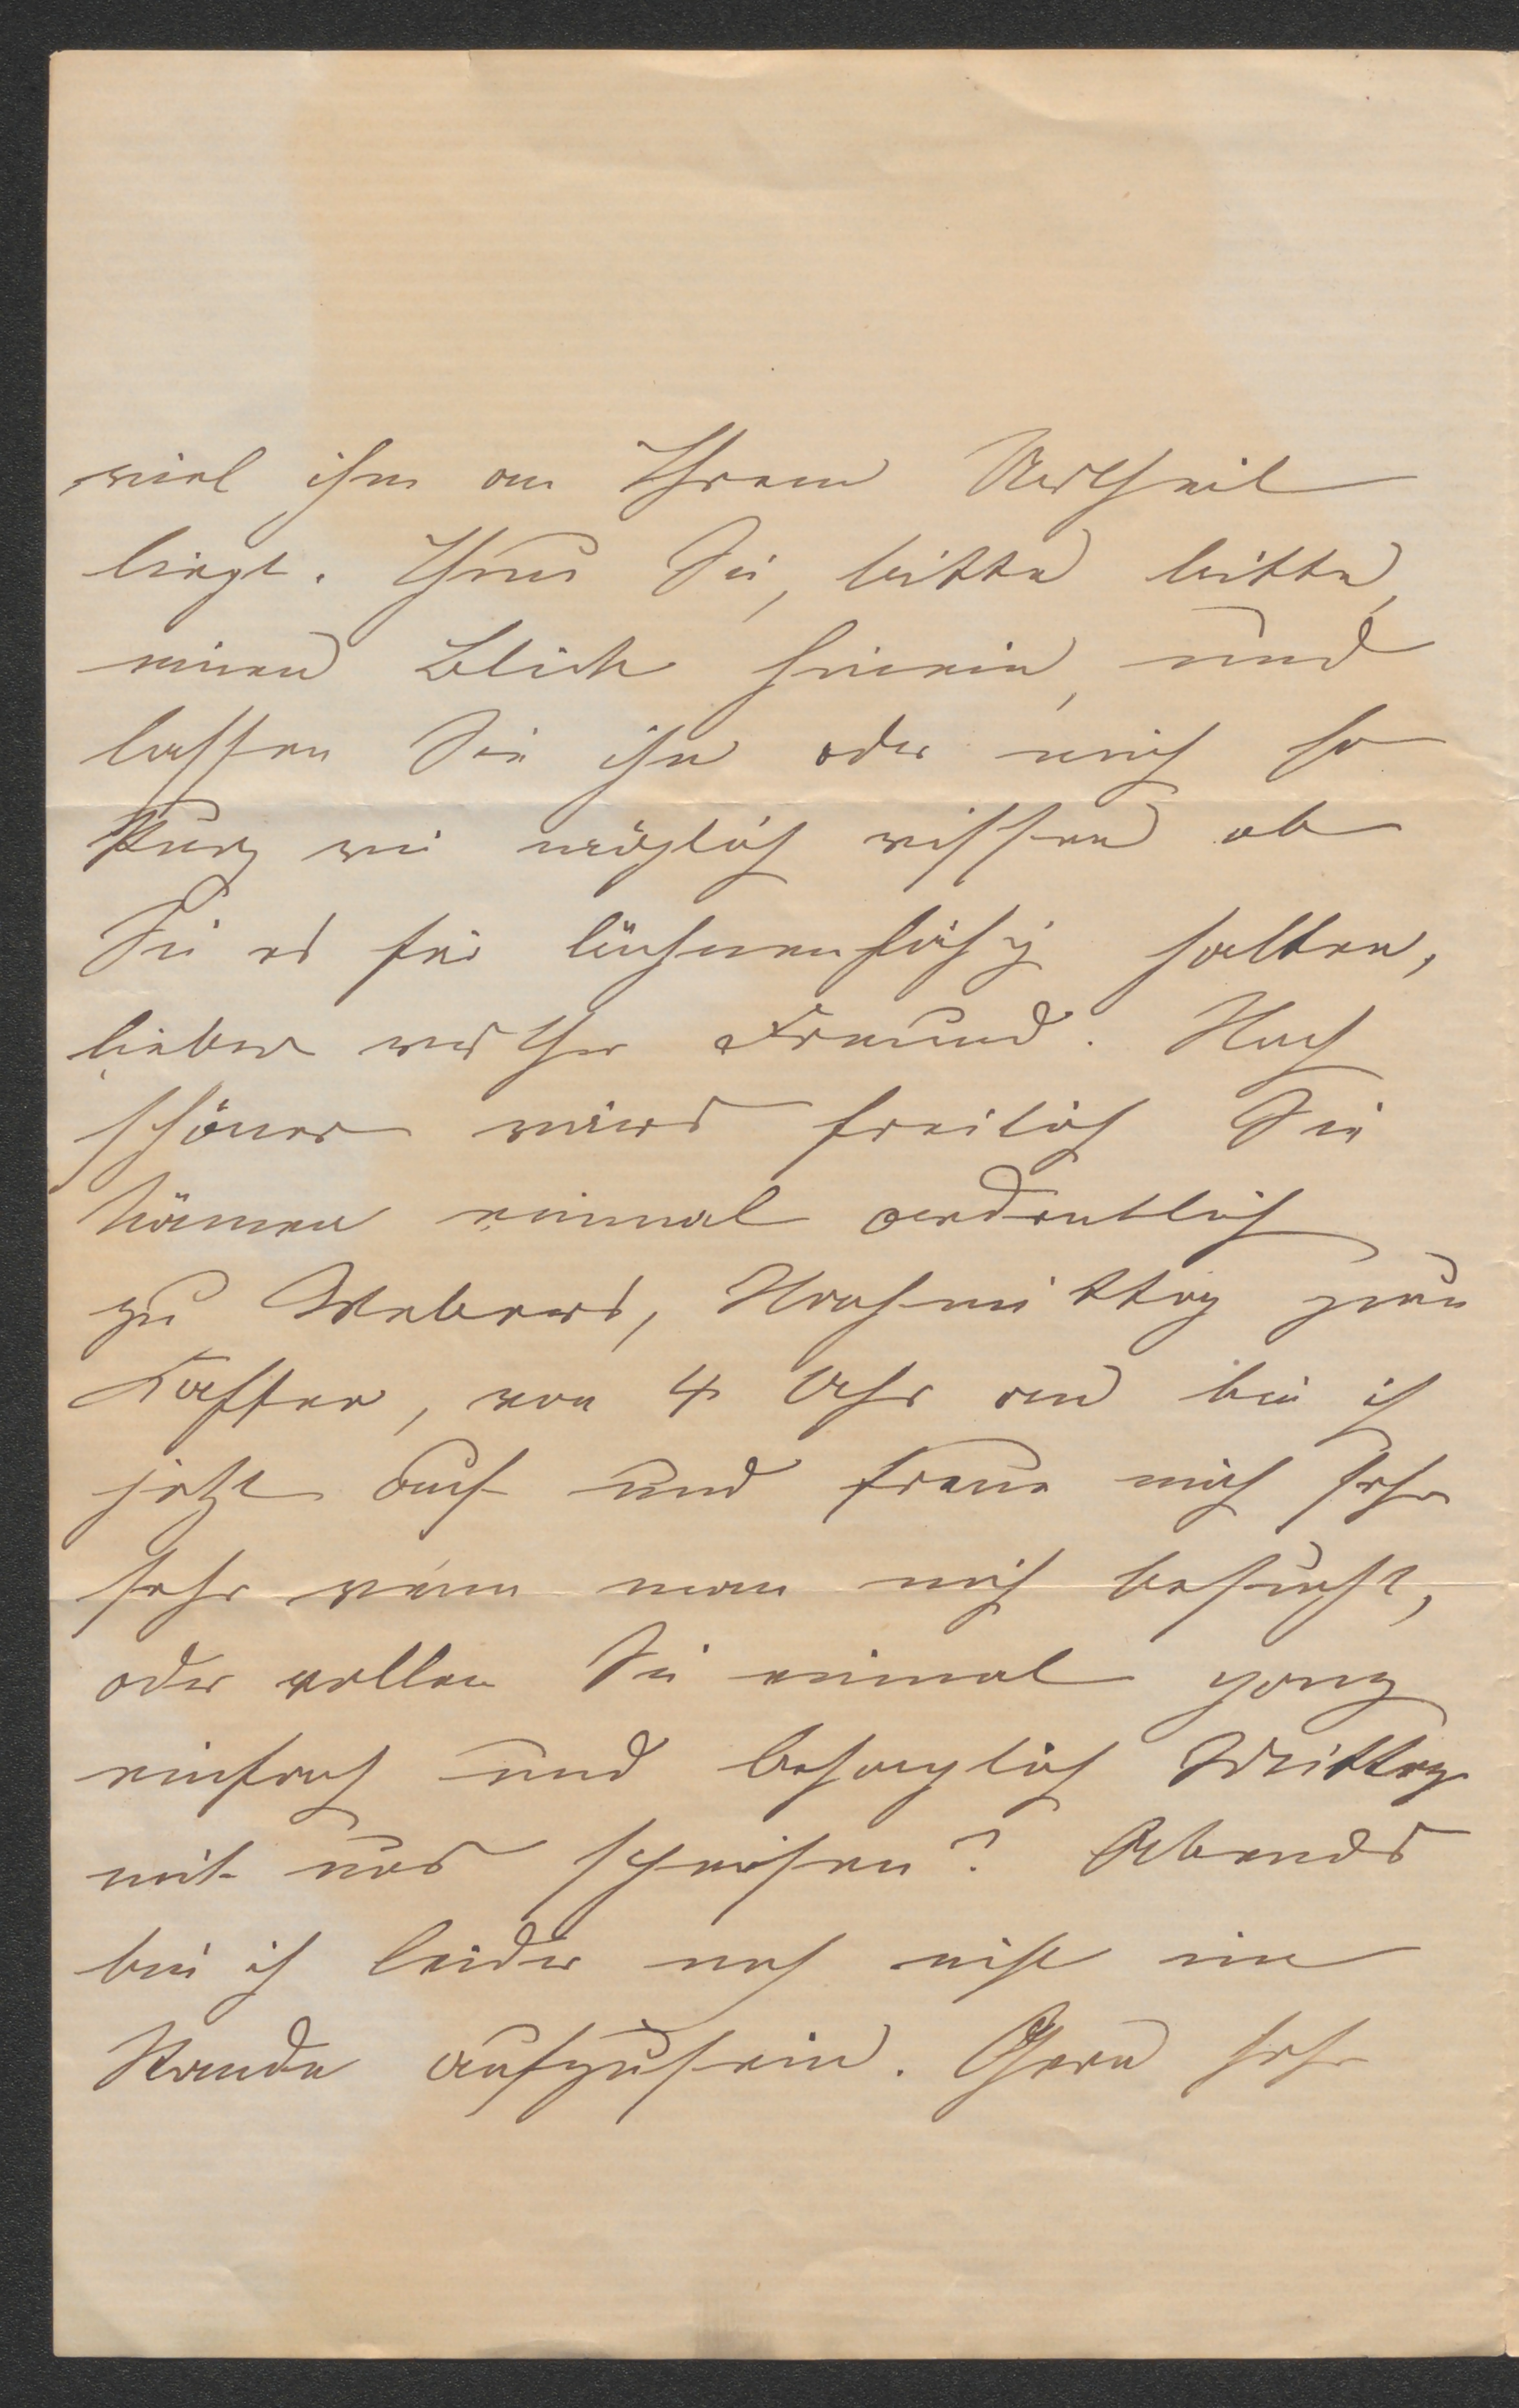 viel ihm an Ihrem Urtheil
liegt. Thun Sie, bitte bitte,
einen Blick hinein, und
lassen Sie ihn oder mich so
kurz wie möglich wissen ob
Sie es für bühnenfähig halten,
lieber werther Freund. Noch
schöner wär's freilich Sie
kämen einmal ordentlich
zu Webers, Nachmittag zum
Kaffee, von 4 Uhr an bin ich
jetzt auf und freue mich sehr
sehr wenn man mich besucht,
oder wollen Sie einmal ganz
einfach und behaglich Mittag
mit uns speisen? Abends
bin ich leider noch nicht im
Stande aufzusein. Gern sehr